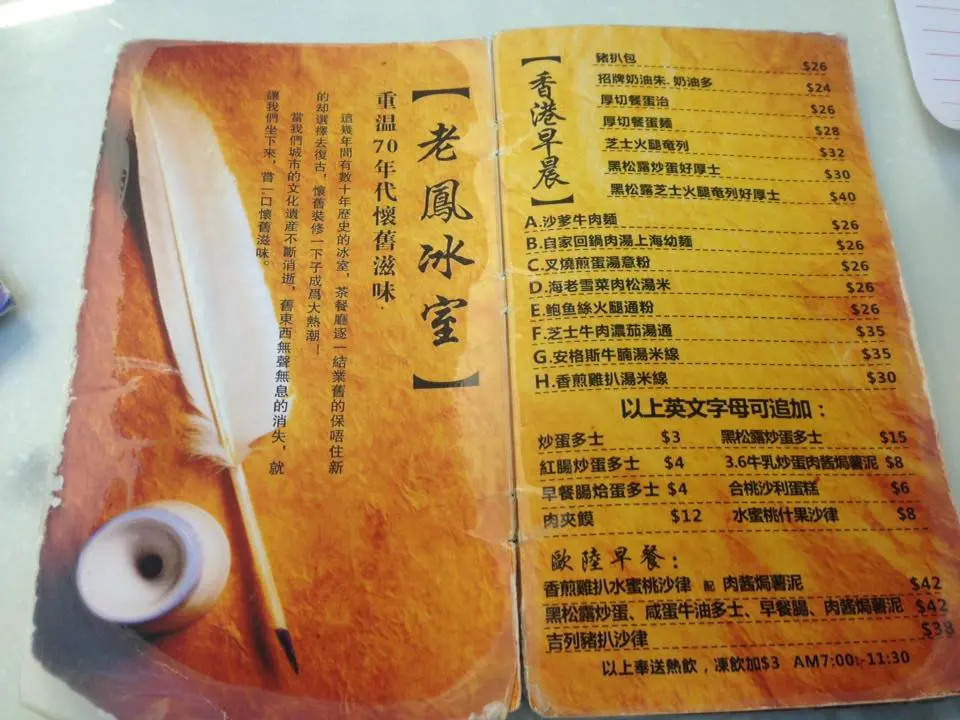 【老鳳冰室】
重温70年代懷舊滋味.
這幾年間有數十年歷史的冰室，茶餐廳逐一結業舊的保唔住新
的却選擇去復古，懷舊裝修一下子成爲大熱潮－
當我們城市的文化遺産不斷消逝，舊東西無聲無息的消失，就
讓我們坐下來，嘗一口懷舊滋味。
【香港早晨】
豬扒包 $26
招牌奶油朱.奶油多 $24
厚切餐蛋治 $26
厚切餐蛋麵 $28
芝士火腿奄列 $32
黑松露炒蛋好厚士 $30
黑松露芝士火腿奄列好厚士 $40
A.沙爹牛肉麵 $26
B.自家回鍋肉湯上海幼麵 $26
C.叉燒煎蛋湯意粉 $26
D.海老雪菜肉松湯米 $26
E.鮑鱼絲火腿通粉 $26
F.芝士牛肉濃茄湯通 $35
G.安格斯牛腩湯米線 $35
H.香煎雞扒湯米線 $30
以上英文字母可追加：
炒蛋多士 $3 黑松露炒蛋多士 $15
紅腸炒蛋多士 $4 3.6牛乳炒蛋肉酱焗薯泥 $8
早餐腸烚蛋多士 $4 合桃沙利蛋糕 $6
肉夾饃 $12 水蜜桃什果沙律 $8
歐陸早餐：
香煎雞扒水蜜桃沙律 配 肉酱焗薯泥 $42
黑松露炒蛋、咸蛋牛油多士、早餐腸、肉酱焗薯泥 $42
吉列豬扒沙律 $38
以上奉送熱飲，凍飲加$3 AM7:00:-11:30